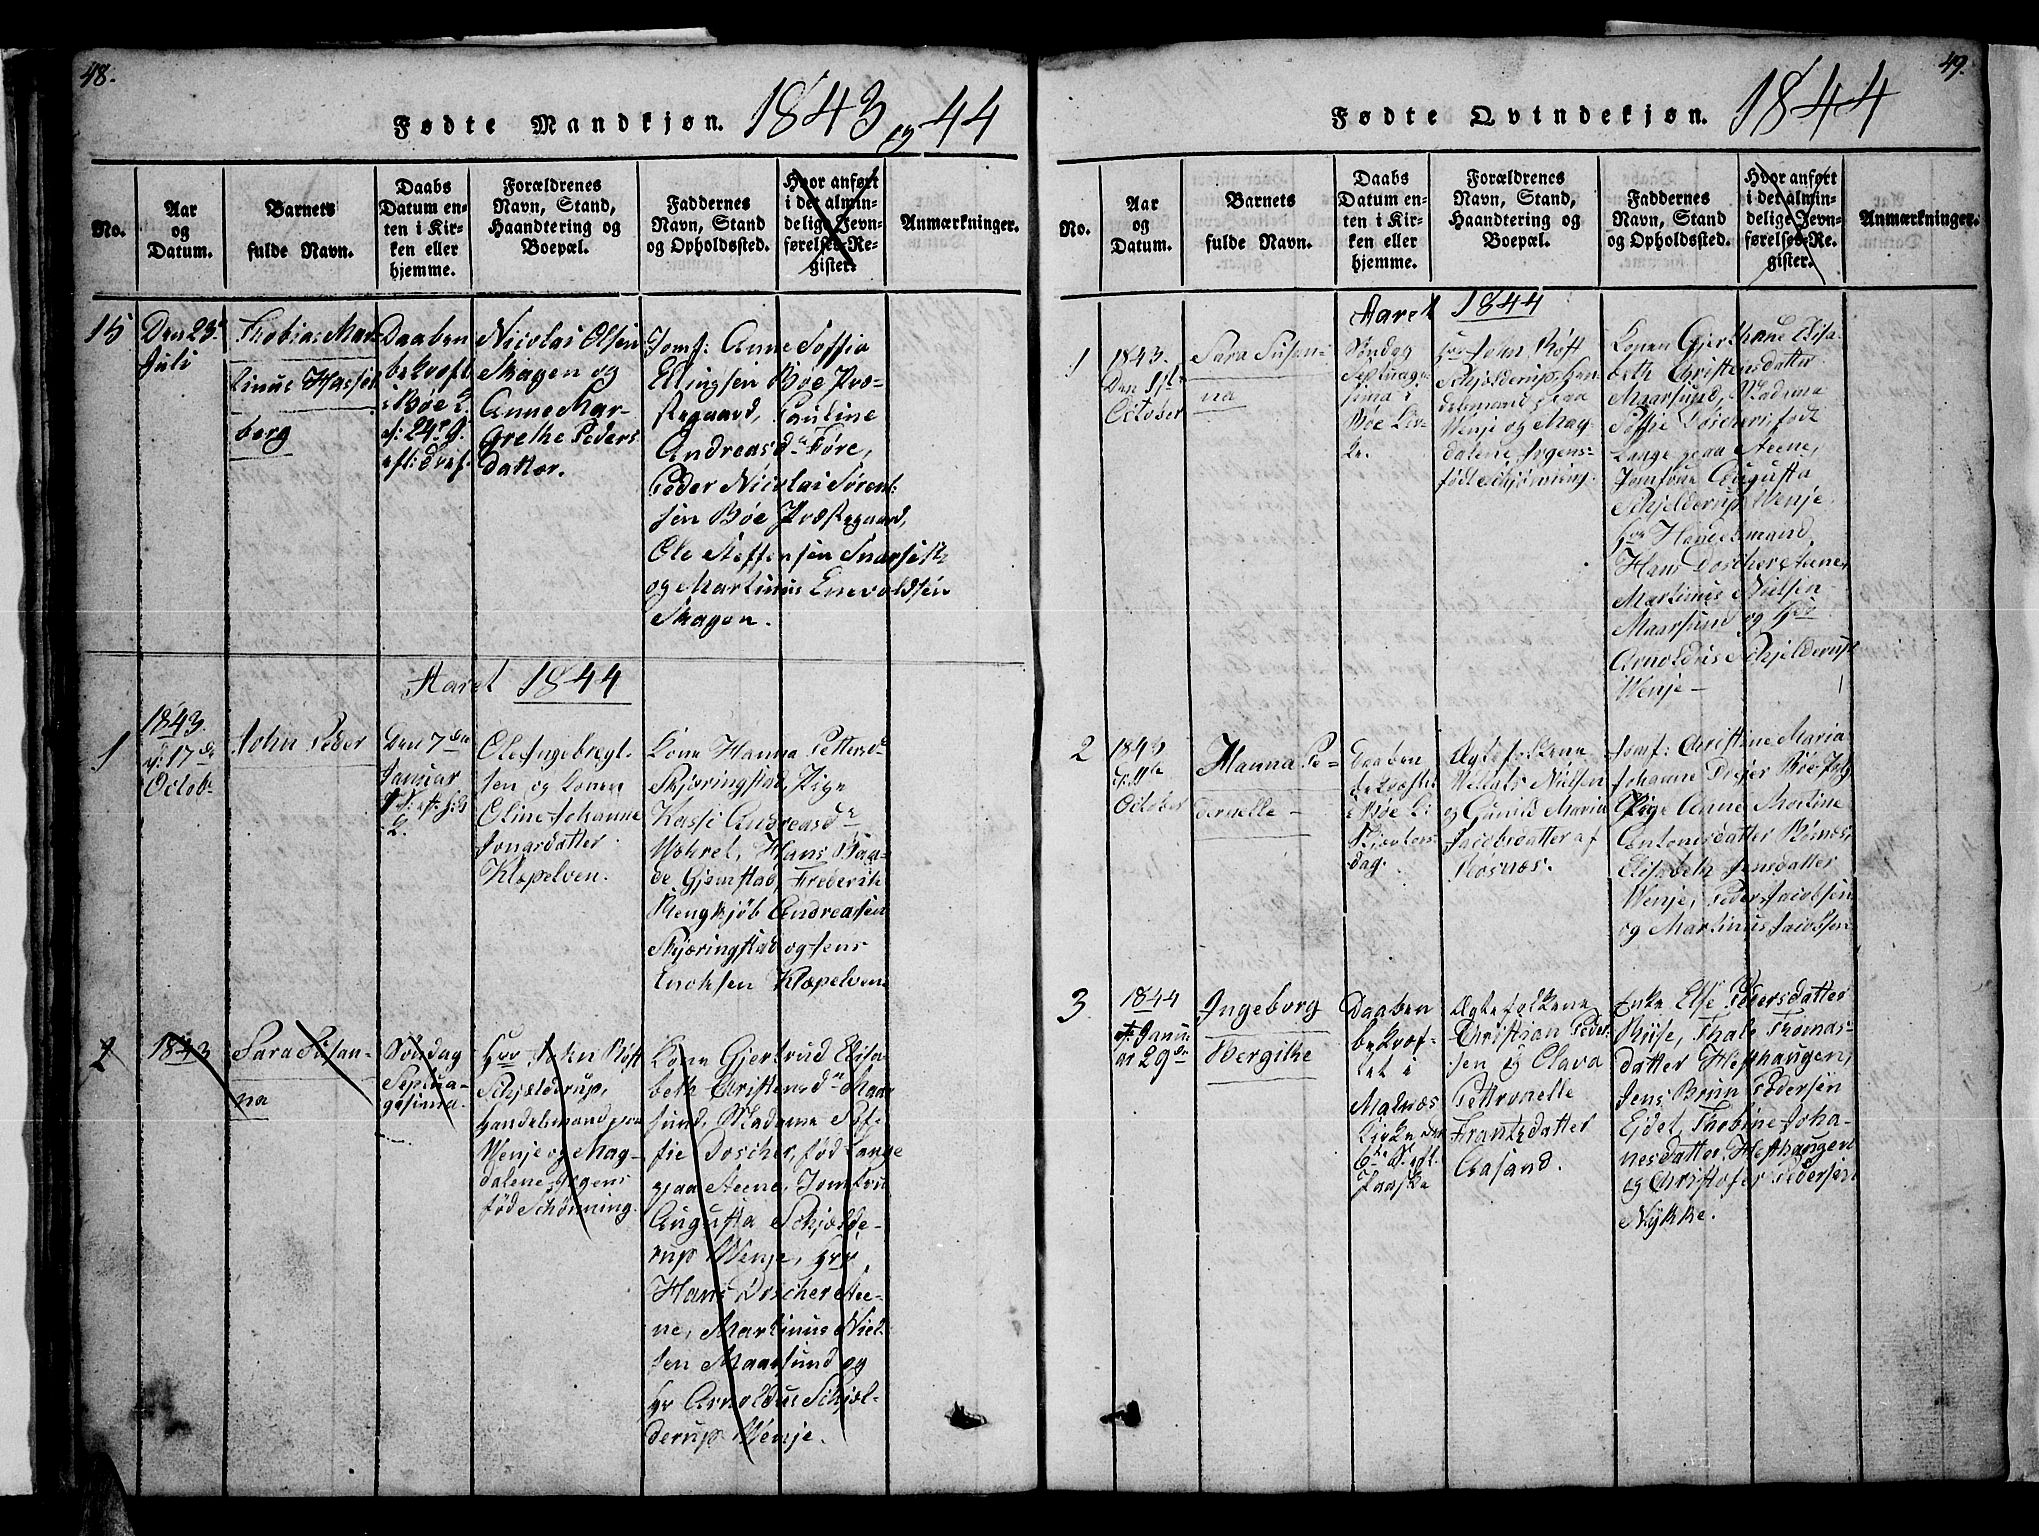 48.
Fødte Mandkjøn. 1843 og 44
No.
Aar
og
Datum.
Barnets
fulde Navn.
Daabs
Datum en-
ten i Kir-
ken eller
hjemme.
Forældrenes
Navn, Stand,
Haandtering og
Boepæl.
Faddernes
Navn, Stand
og Opholdssted.
Hvor anført
i det almin-
delige Jevn-
førelses-Re-
gister.
Anmærkninger.
15
Den 23de
Juli
Tobias Mar-
tinus Hassel-
berg
Daaben
bekræft
i Bøe
Nicolai Olsen
Skagen og
Anne Mar-
Grethe Peders
datter.
Jomf: Anne Soffia
Ellingsen Bøe Præ-
stegaard, Pauline
Andreasdr Føre,
Peder Nicolai Sørent-
sen Bøe Præstegaard,
Ole Steffensen
og Martinus Enevoldsen
Skagen.
Aaret 1844
1
1843.
d: 17de
Octobr
John Peder
Den 7de
Januar
Ole Ingebregt-
sen og Konen
Oline Johanne
Jonasdatter
Klæpelven.
Kone Hanna Pettersd
Skjæringstad, Pige
Andreasdr
Hans Baa-
de Gjemstad, Frederik
Rengkjøb Andreasen
Skjæringstad og Jens
Enoksen Klæpelven
2
1843
Sara Susan-
na
Søndag
Septua-
gesima
Hrr John Røft
Schjelderup,
Handelsmand paa
Wenje og Mag-
dalene Jrgens
född Schønning.
Kone Gjertrud Elisa
beth Christensdr Maar
sund, Madame Sof-
fie Doscher, född Lange
paa Steene, Jomfru
Augusta Schjelde-
rup Wenje, Hrr
Hans Doscher Stee-
ne, Martinus Niel-
sen Maarsund og
Hr Arnoldus Schjel-
derup Wenje.
49.
Fødte Qvindekjøn. 1844
No.
Aar
og
Datum.
Barnets
fulde Navn.
Daabs
Datum en-
ten i Kir-
ken eller
hjemme.
Forældrenes
Navn, Stand,
Haandtering og
Boepæl.
Faddernes
Navn, Stand
og Opholdssted.
Hvor anført
i det almin-
delige Jevn-
førelses-Re-
gister.
Anmærkninger.
Aaret 1844
1
1843.
Den
October
Sara Susan-
na
Søndag
Septuage
sima i
Bøe Kir-
ke.
Hrr John Røft
Schjolderup, Han
delsmand paa
Wenje og Mag-
dalene Jrgens
född Schjønning.
Konen Gjerthane Elisa-
beth Christensdatter
Maarsund, Madame
Soffie Doscher född
Lange paa Steene,
Jomfrue Augusta
Schjelderup Wenje
Hrr Handelsmand
Hans Doscher Steene
Martinus Nielsen
Maarsund og Hr
Arnoldus Schjelderup
Wenje
2
1843
October
Hanna Pe-
dernelle
Daaben
bekræftet
i Bøe Ki
dag.
Ægtefolkene
Nielsen
og Gunild Maria
Jacobsdatter af
Røsnæs.
Jomf: Christine Maria
Johanne Drejer Bøe
Pige Anne Martine
Antonisdatter Røsnæs
Elisabeth Jensdatter
Wenje, Peder Jacobsen
og Martinus Jacobsen
3
1844
Janu
ar 29de
Ingeborg
Bergithe
Daaben
bekræf-
tet i
Malnæs
Kirke
Paaske
Ægtefolkene
Christian Peder-
sen og Olava
Pettronelle
Frantzdatter
Aasand.
Enke Else Pedersdatter
Riise, Thale Thomas-
datter Hesthaugen,
Jens Brun Pedersen
Ejdet, Thobine Joha-
nesdatter Hesthaugen
og Christofer Pedersen
Nykke.